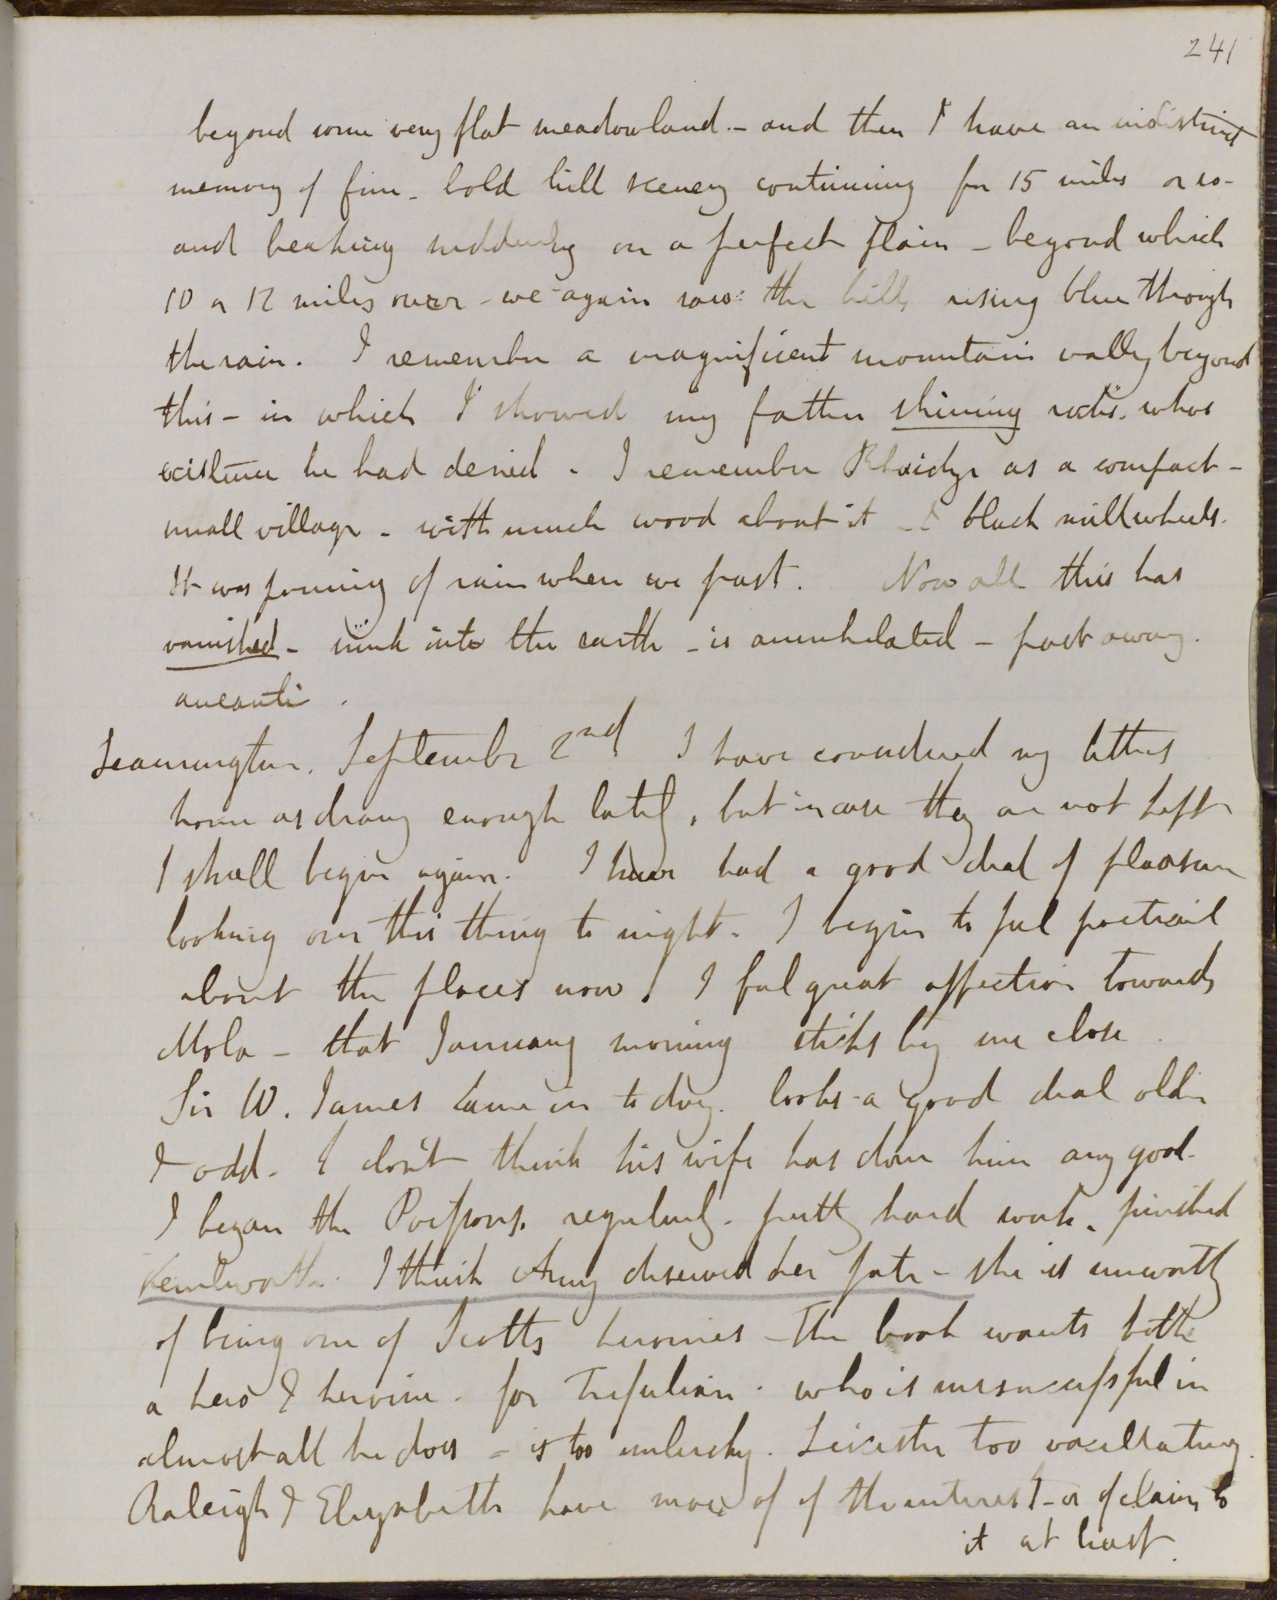 241
beyond some very flat meadowland - and then I have an indistinct
memory of fine - bold hill scenery continuing for 15 miles or so -
and breaking suddenly on a perfect plain - beyond which
10 or 12 miles over - we again saw the hills rising blue through
the rain. I remember a magnificent mountain valley beyond
this - in which I showed my father shining rocks. whose
existence he had denied - I remember Rhaidyr as a compact -
small village - with much wood about it - & black millwheels.
It was pouring of rain when we past. Now all this has
vanished - sunk into the earth - is annihelated - past away.
aneanti.
Leamington. September 2nd I have considered my letters
home as diary enough lately, but in case they are not kept
I shall begin again. I have had a good deal of pleasure
looking over this thing to night. I begin to feel poetical
about the places now! I feel great affection towards
Mola - that January morning sticks by me close.
Sir W. James came in to day. looks a good deal older
& odd. I don't think his wife has done him any good.
I began the regularly. pretty hard work. finished
Kenilworth. I think Amy deserved her fate - she is unworthy
of being one of Scotts heroines - The book wants both
a hero & heroine. for Tresilian. who is unsuccessful in
almost all he does - is too unlucky. Leicester too vacillating.
Raleigh & Elizabeth have more of of the interest - or of claim to
it at least.